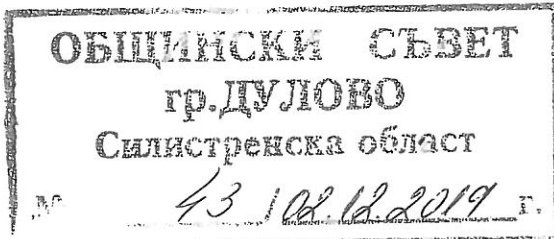 ОБЩИНСКИ СЪВЕТ
гр.ДУЛОВО
Силистренска област
№ 43 / 02.12.2019 г.